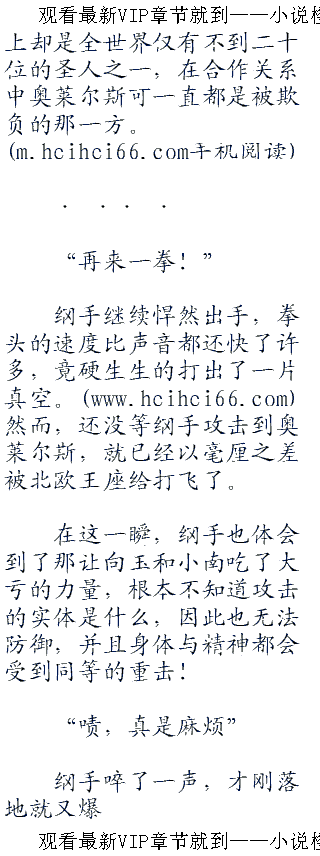 观看最新VIP章节就到——小说检
上却是全世界仅有不到二十
位的圣人之一，在合作关系
中奥莱尔斯可一直都是被欺
负的那一方。
(m.hcihci66.com手机阅读)
． ． ． ．
“再来一拳！”
纲手继续悍然出手，拳
头的速度比声音都还快了许
多，竟硬生生的打出了一片
真空。(www.hcihci66.com)
然而，还没等纲手攻击到奥
莱尔斯，就已经以毫厘之差
被北欧王座给打飞了。
在这一瞬，纲手也体会
到了那让向玉和小南吃了大
亏的力量，根本不知道攻击
的实体是什么，因此也无法
防御，并且身体与精神都会
受到同等的重击！
“啧，真是麻烦”
纲手啐了一声，才刚落
地就又爆
观看最新VIP章节就到——小说检